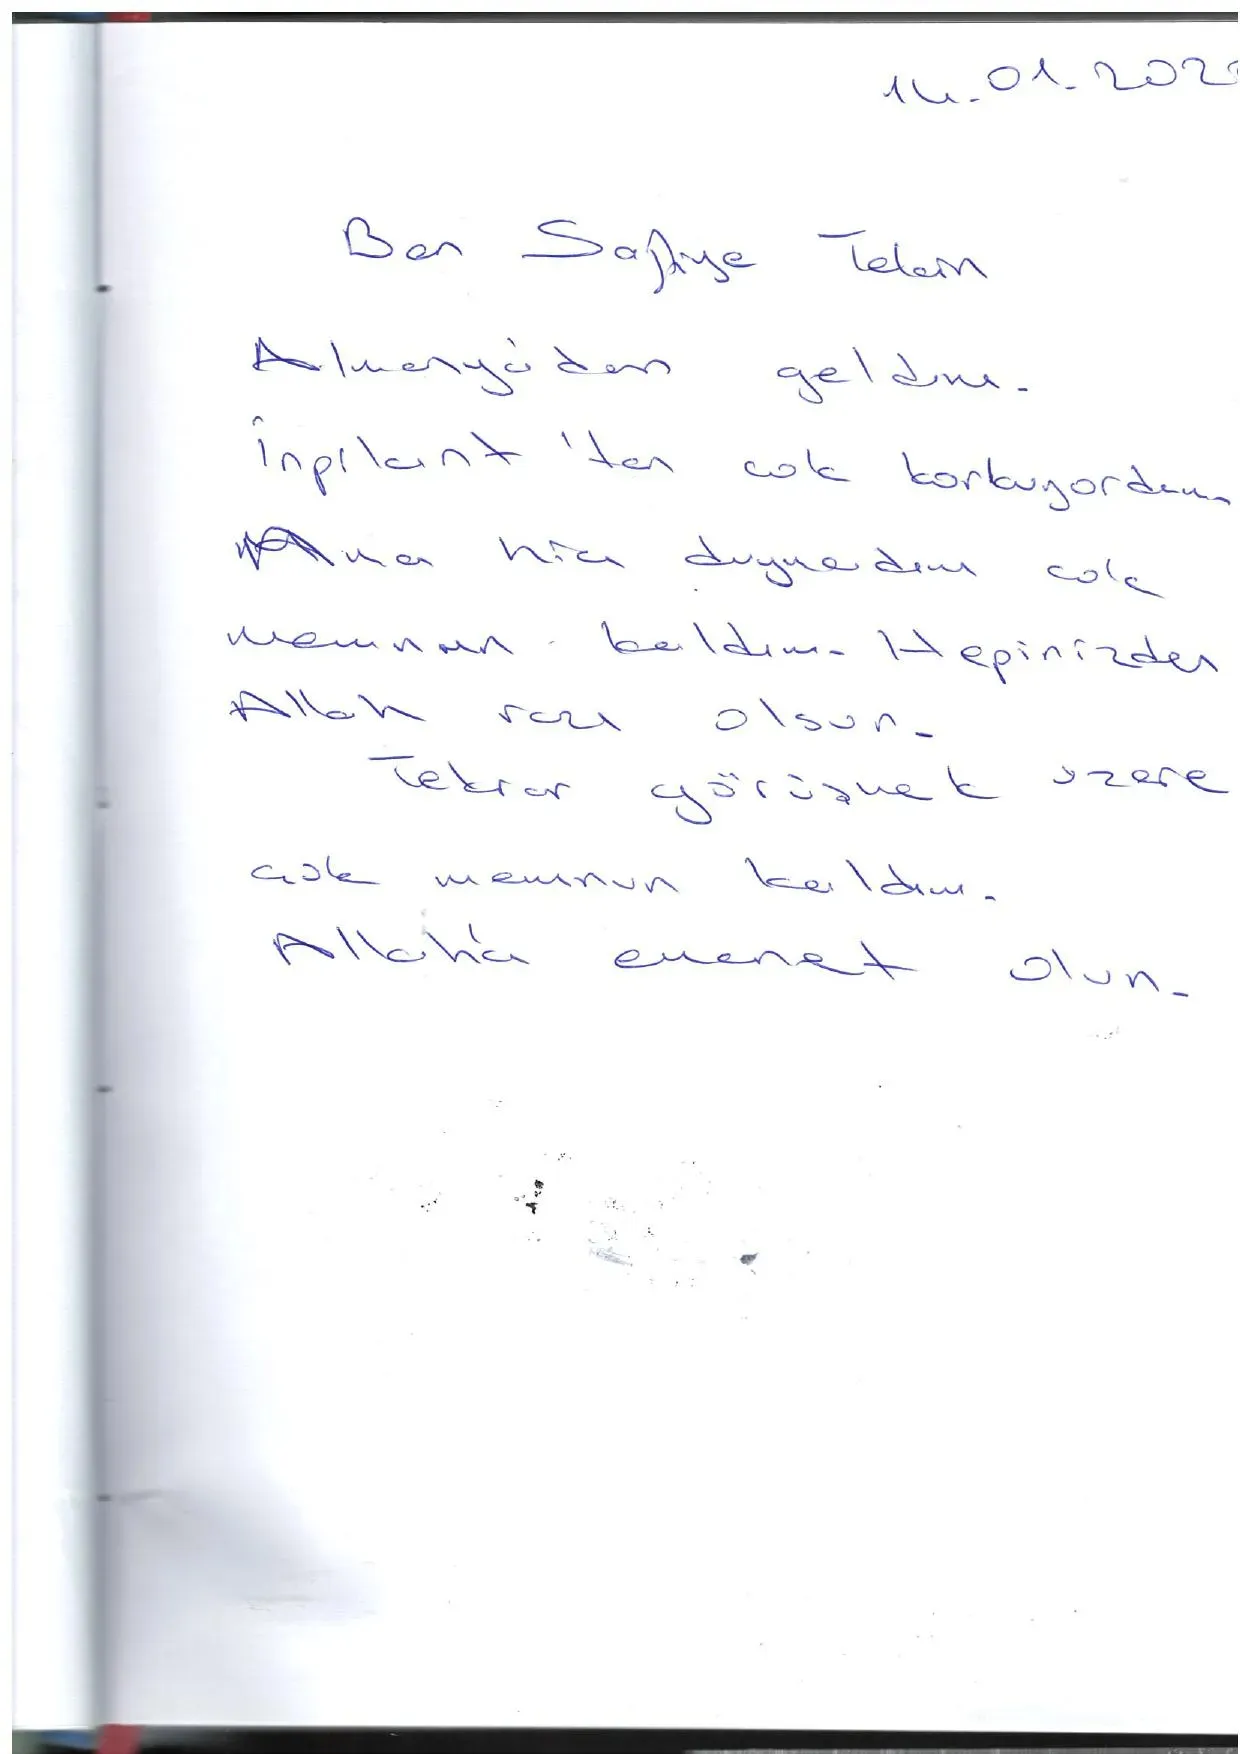 14.01.202
Ben Safiye Tekin
Almanya'dan geldim.
İnpilant'tan cok korkuyordum
Ama hiç duymadım cok
memnun kaldım. Hepinizden
Allah razı olsun.
Tekrar görüşmek üzere
çok memnun kaldım.
Allah'a emanet olun.